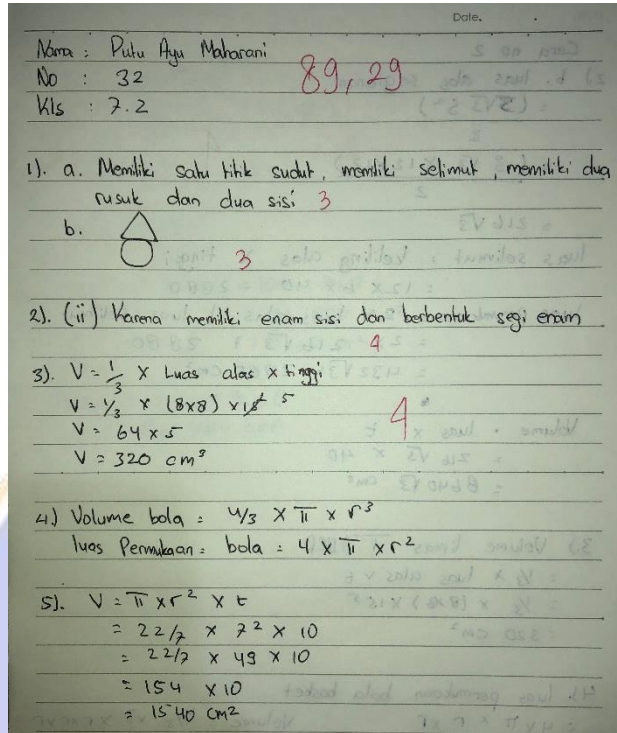 Date.
Nama : Putu Ayu Maharani
No : 32
Kls : 7.2
89,29
1). a. Memiliki satu titik sudut, memiliki selimut, memiliki dua
rusuk dan dua sisi 3
b.
3
2). (ii) Karena memiliki enam sisi dan berbentuk segi enam
4
3). V = 1/3 x Luas alas x tinggi
V = 1/3 x (8x8) x 15 5
V = 64 x 5
V = 320 cm³
4
4.) Volume bola = 4/3 x π x r³
luas Permukaan = bola = 4 x π x r²
5). V = π x r² x t
= 22/7 x 7² x 10
= 22/7 x 49 x 10
= 154 x 10
= 1540 cm²